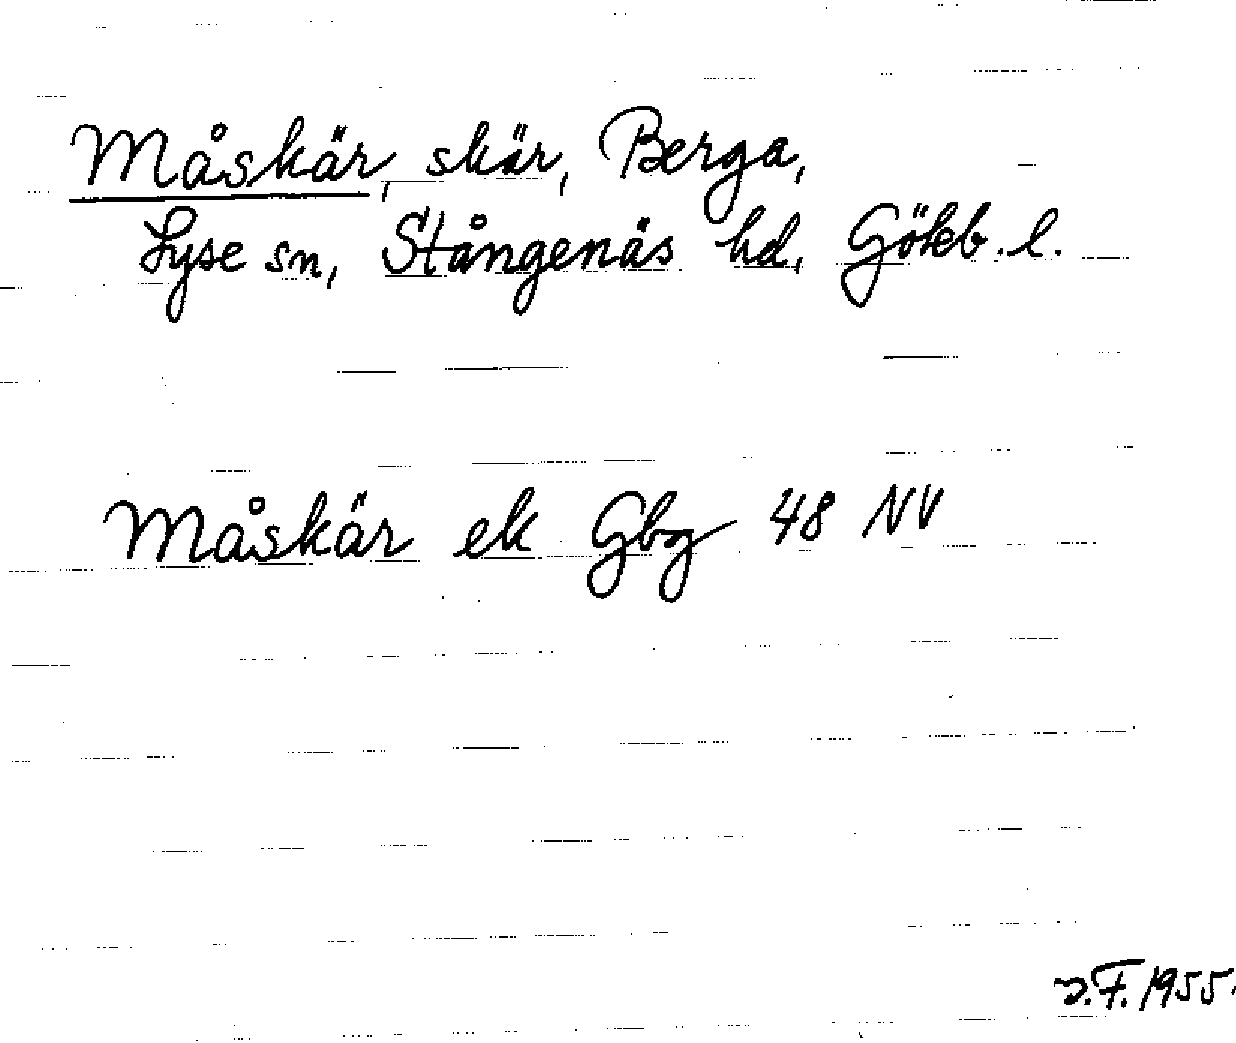 Måskär, skär, Berga,
Lyse sn, Stångenäs hd, Göteb. l.
Måskär ek Gbg 48 NV
F. 1955.